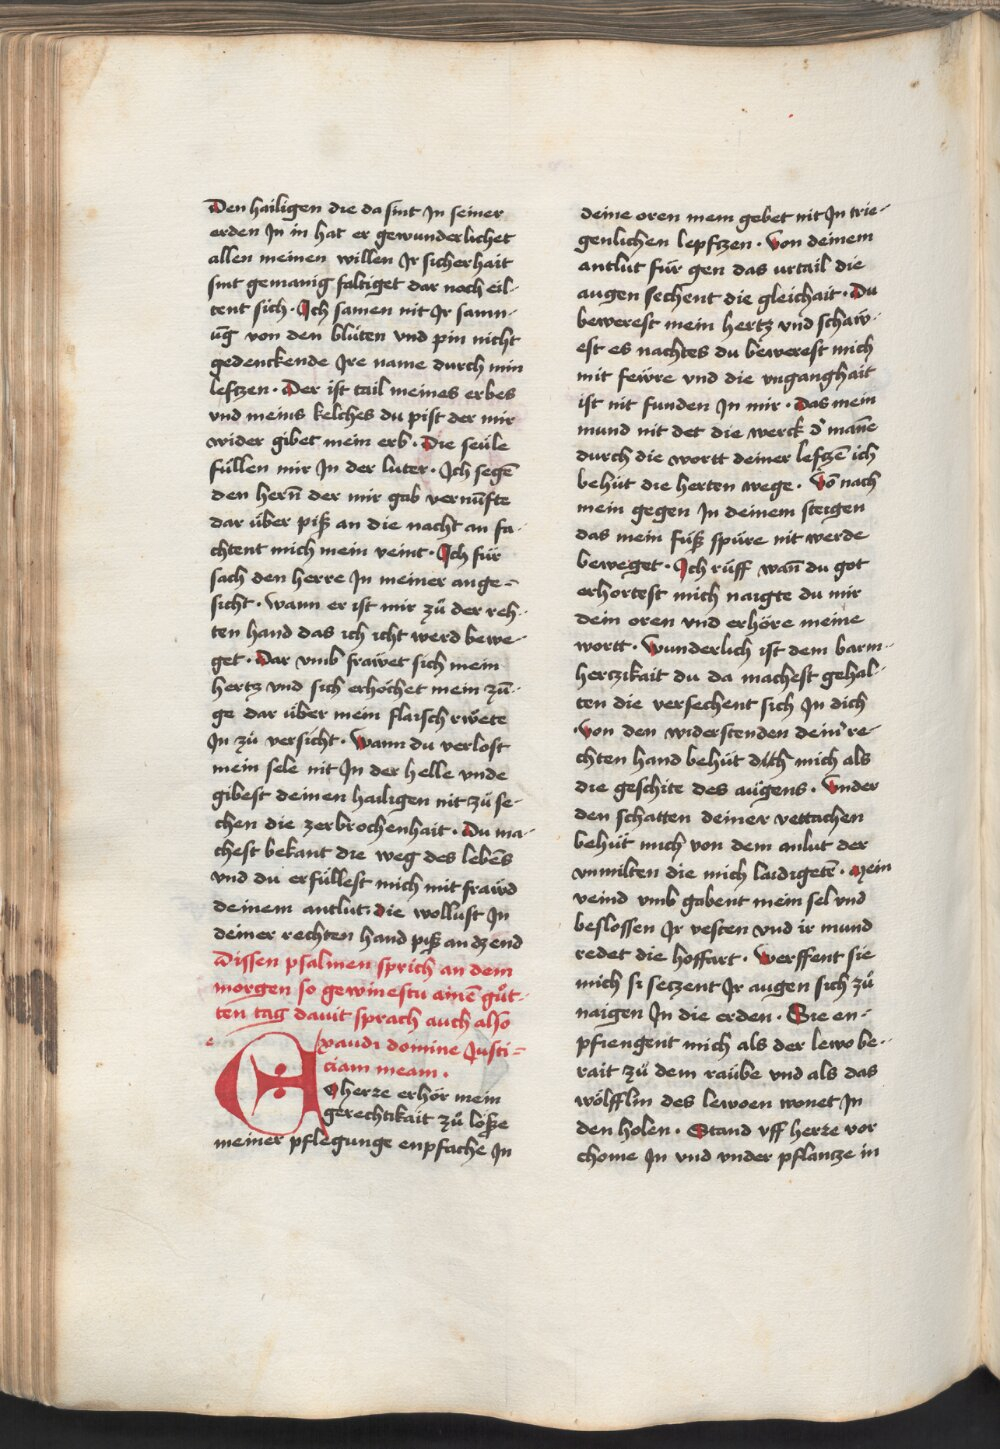 Den hailigen die da sint In seiner
erden In in hat er gewunderlichet
allen meinen willen Ir sicherhait
sint gemanig faltiget dar noch eil-
tent sich · Ich samen nit Ir samn-
ūg von den blüten vnd pin nicht
gedenckende Ire name durch min
lefczen · Der ist tail meines erbes
vnd meins kelches du pist der mir
wider gibet mein erb · Die seüle
füllen mir In der luter · Ich segē
den hern̄ der mir gab vernūfte
dar über piß an die nacht an fa-
chtent mich mein veint · Ich für
sach den herre In meiner ange-
sicht · wann er ist mir zů der reh-
ten hand das ich icht werd bewe-
get · Dar vmb fräwet sich mein
hertz vnd sich erhöchet mein zū-
ge dar über mein flaisch rwete
In zů versicht · Wann du verlost
mein sele nit In der helle vnde
gibest deinen hailigen nit zů se-
chen die zerbrochenhait · Du ma-
chest bekant die weg des lebēs
vnd du erfüllest mich mit fräwd
deinem antlut die wollust In
deiner rechten hand piß an dz end
Dissen psalmen sprich an dem
morgen so gewinestu ainē gůt-
ten tag dauit sprach auch also
e
Exaudi domine Justi-
ciam meam ·
O herre erhör mein
gerechtikait zů löße
meiner pflegunge enpfache In
deine oren mein gebet nit In trie-
genlichen lepfczen · Von deinem
antlut für gen das urtail die
augen sechent die gleichait · Du
bewerest mein hertz vnd schaw-
est es nachtes du bewerest mich
mit fewre vnd die vnganghait
ist nit funden In mir · Das mein
mund nit det die werck d' manē
durch die wortt deiner lefczen ich
behüt die herten wege · Vō nach
mein gegen In deinem steigen
das mein füß spüre nit werde
beweget · Ich rüff wan̄ du got
erhortest mich naigte du mir
dein oren vnd erhöre meine
wortt · Wunderlich ist dem barm-
herczikait du da machest gehal-
ten die versechent sich In dich
· Von den widerstenden dein' re-
chten hand behüt dich mich als
die geschite des augens · Vnder
den schatten deiner vettachen
behüt mich von dem anlut der
vnmilten die mich laidigetē · Mein
veind vmb gabent mein sel vnd
beslossen Ir vesten vnd ir mund
redet die hoffart · Werffent sie
mich si seczent Ir augen sich zů
naigen In die erden · Sie en-
pfiengent mich als der lewo be-
rait zů dem raube vnd als das
wölfflin des lewoen wonet In
den holen · Stand vff herre vor
chome In vnd vnder pflantze in